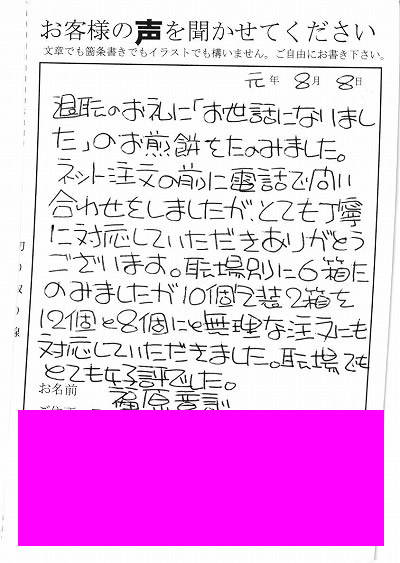 お客様の声を聞かせてください
文章でも箇条書きでもイラストでも構いません。ご自由にお書き下さい。
元年 8月 8日
退転のお礼に「お世話にないまし
た」のお煎餅をたのみました。
ネット注文の前に電話で問い
合わせをしましたが、とても丁寧
に対応していただきありがとう
ございます。転場別に6箱た
のみましたが10個包装2箱を
12個と8個にと無理な注文にも
対応していただきました。転場でも
とても好評でした。
お名前